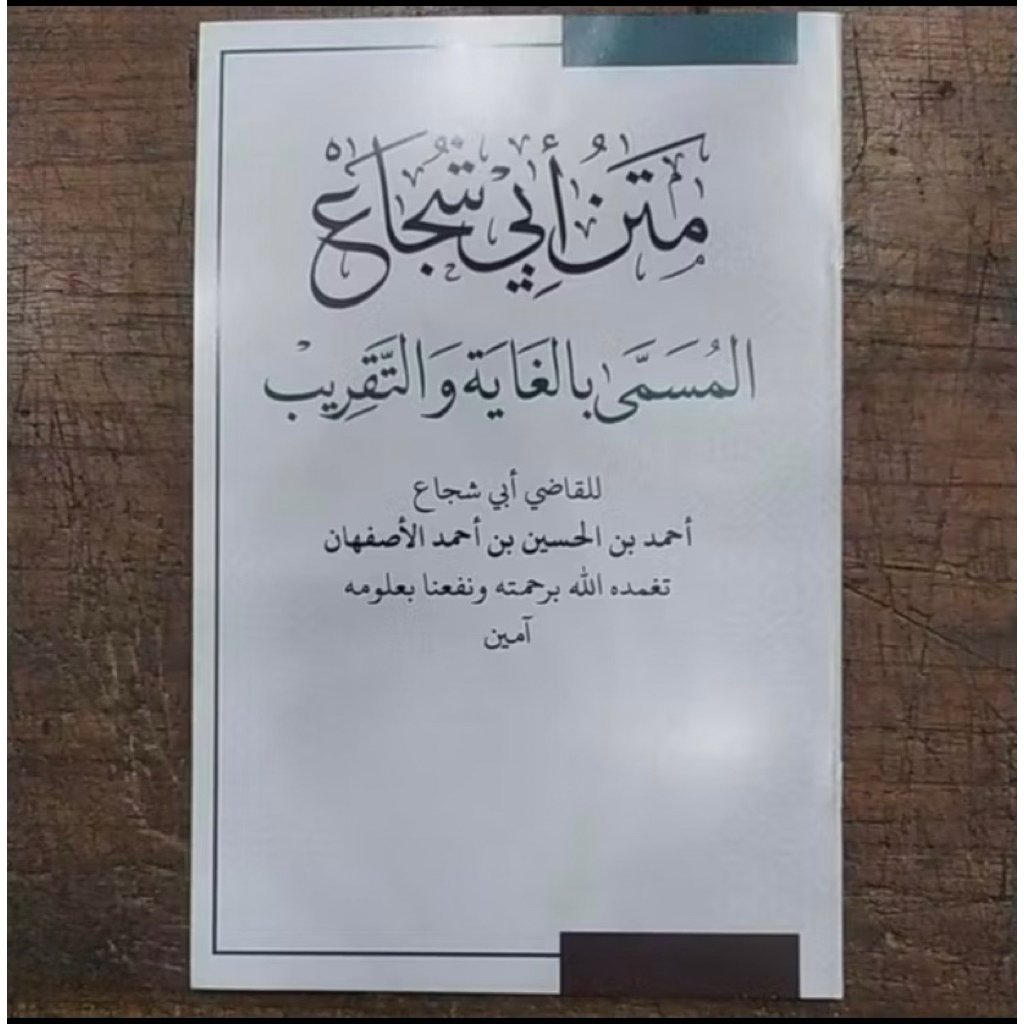 مَتْنُ أَبِي شُجَاعْ
المُسَمَّى بالغَايَة وَالتَّقْرِيبْ
للقاضي أبي شجاع
أحمد بن الحسين بن أحمد الأصفهان
تغمده الله برحمته ونفعنا بعلومه
آمين